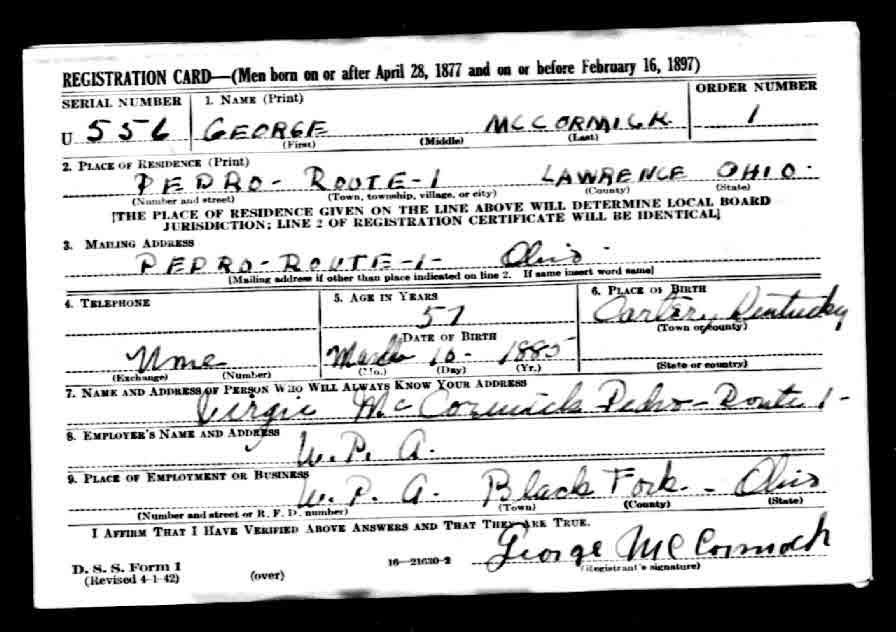 REGISTRATION CARD—(Men born on or after April 28, 1877 and on or before February 16, 1897)
SERIAL NUMBER 1. NAME (Print) ORDER NUMBER
U 556 GEORGE MCCORMICK 1
(First) (Middle) (Last)
2. PLACE OF RESIDENCE (Print)
PEDRO- ROUTE-1 LAWRENCE OHIO
(Number and street) (Town, township, village, or city) (County) (State)
[THE PLACE OF RESIDENCE GIVEN ON THE LINE ABOVE WILL DETERMINE LOCAL BOARD
JURISDICTION; LINE 2 OF REGISTRATION CERTIFICATE WILL BE IDENTICAL]
3. MAILING ADDRESS
PEDRO-ROUTE-1- Ohio
[Mailing address if other than place indicated on line 2. If same insert word same]
4. TELEPHONE 5. AGE IN YEARS 6. PLACE OF BIRTH
57 Carter, Kentucky
DATE OF BIRTH (Town or county)
None March 16- 1885
(Exchange) (Number) (Mo.) (Day) (Yr.) (State or country)
7. NAME AND ADDRESS OF PERSON WHO WILL ALWAYS KNOW YOUR ADDRESS
Virgie McCormick Pedro-Route 1-
8. EMPLOYER'S NAME AND ADDRESS
W. P. A.
9. PLACE OF EMPLOYMENT OR BUSINESS
W. P. A. Black Fork - Ohio
(Number and street or R. F. D. number) (Town) (County) (State)
I AFFIRM THAT I HAVE VERIFIED ABOVE ANSWERS AND THAT THEY ARE TRUE.
George McCormick
D. S. S. Form 1 16—21630-2 (Registrant's signature)
(Revised 4-1-42) (over)